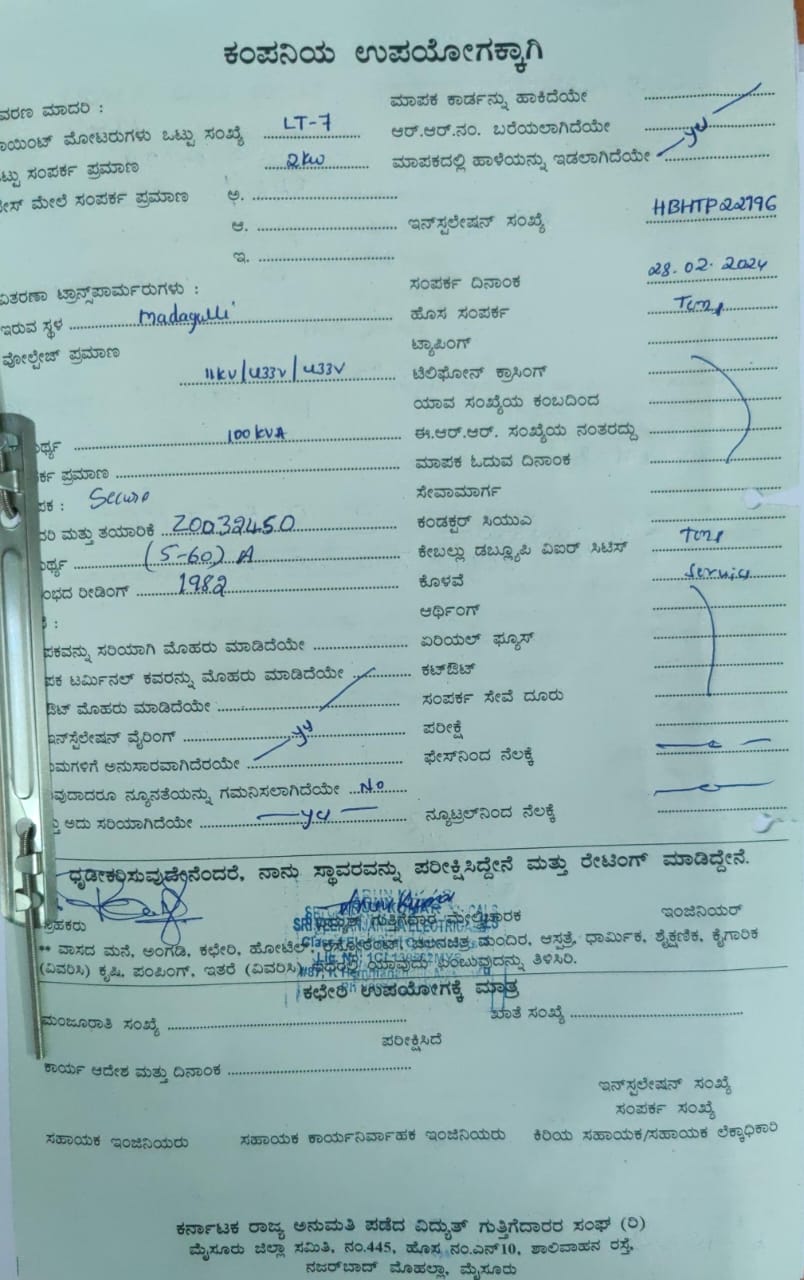 ಕಂಪನಿಯ ಉಪಯೋಗಕ್ಕಾಗಿ
ವರಣ ಮಾದರಿ : ಮಾಪಕ ಕಾರ್ಡನ್ನು ಹಾಕಿದೆಯೇ
ಾಯಿಂಟ್ ಮೋಟರುಗಳು ಒಟ್ಟು ಸಂಖ್ಯೆ LT-7 ಆರ್.ಆರ್.ನಂ. ಬರೆಯಲಾಗಿದೆಯೇ
ಟ್ಟು ಸಂಪರ್ಕ ಪ್ರಮಾಣ 2kw ಮಾಪಕದಲ್ಲಿ ಹಾಳೆಯನ್ನು ಇಡಲಾಗಿದೆಯೇ yes
ೇಸ್ ಮೇಲೆ ಸಂಪರ್ಕ ಪ್ರಮಾಣ ಅ.
ಆ. ಇನ್‌ಸ್ಪಲೇಷನ್ ಸಂಖ್ಯೆ HBHTP22796
ಇ.
ವಿತರಣಾ ಟ್ರಾನ್ಸ್‌ಪಾರ್ಮರುಗಳು : ಸಂಪರ್ಕ ದಿನಾಂಕ 28.02.2024
ಇರುವ ಸ್ಥಳ Madagulli ಹೊಸ ಸಂಪರ್ಕ Temp
ವೋಲ್ಟೇಜ್ ಪ್ರಮಾಣ ಟ್ಯಾಪಿಂಗ್
11kv/433v/433v ಟೆಲಿಫೋನ್ ಕ್ರಾಸಿಂಗ್
ಯಾವ ಸಂಖ್ಯೆಯ ಕಂಬದಿಂದ
ರ್ಥ್ಯ 100 KVA ಈ.ಆರ್.ಆರ್. ಸಂಖ್ಯೆಯ ನಂತರದ್ದು
ರ್ಕ ಪ್ರಮಾಣ ಮಾಪಕ ಓದುವ ದಿನಾಂಕ
ಪಕ : Secure ಸೇವಾಮಾರ್ಗ
ದರಿ ಮತ್ತು ತಯಾರಿಕೆ Z0032450 ಕಂಡಕ್ಟರ್ ಸಿಯುಎ
ರ್ಥ್ಯ (5-60) A ಕೇಬಲ್ಲು ಡಬ್ಲ್ಯೂಪಿ ವಿಐರ್ ಸಿಟಿಸ್ Temp
ಂಭದ ರೀಡಿಂಗ್ 1982 ಕೊಳವೆ Service
: ಆರ್ಥಿಂಗ್
ಪಕವನ್ನು ಸರಿಯಾಗಿ ಮೊಹರು ಮಾಡಿದೆಯೇ ಏರಿಯಲ್ ಫ್ಯೂಸ್
ಪಕ ಟರ್ಮಿನಲ್ ಕವರನ್ನು ಮೊಹರು ಮಾಡಿದೆಯೇ ಕಟ್‌ಔಟ್
ಔಟ್ ಮೊಹರು ಮಾಡಿದೆಯೇ ಸಂಪರ್ಕ ಸೇವೆ ದೂರು
ಇನ್‌ಸ್ಪೆಲೇಷನ್ ವೈರಿಂಗ್ yes ಪರೀಕ್ಷೆ
ಯಮಗಳಿಗೆ ಅನುಸಾರವಾಗಿದೆರಯೇ ಫೇಸ್‌ನಿಂದ ನೆಲಕ್ಕೆ
ವುದಾದರೂ ನ್ಯೂನತೆಯನ್ನು ಗಮನಿಸಲಾಗಿದೆಯೇ No
ತ್ತು ಅದು ಸರಿಯಾಗಿದೆಯೇ yes ನ್ಯೂಟ್ರಲ್‌ನಿಂದ ನೆಲಕ್ಕೆ
ಧೃಡೀಕರಿಸುವುದೇನೆಂದರೆ, ನಾನು ಸ್ಥಾವರವನ್ನು ಪರೀಕ್ಷಿಸಿದ್ದೇನೆ ಮತ್ತು ರೇಟಿಂಗ್ ಮಾಡಿದ್ದೇನೆ.
ಗ್ರಾಹಕರು ವಿದ್ಯುತ್ ಗುತ್ತಿಗೆದಾರ ಮೇಲ್ವಿಚಾರಕ ಇಂಜಿನಿಯರ್
** ವಾಸದ ಮನೆ, ಅಂಗಡಿ, ಕಛೇರಿ, ಹೋಟೆಲ್, ಚಲನಚಿತ್ರ ಮಂದಿರ, ಆಸ್ಪತ್ರೆ, ಧಾರ್ಮಿಕ, ಶೈಕ್ಷಣಿಕ, ಕೈಗಾರಿಕ
(ವಿವರಿಸಿ) ಕೃಷಿ, ಪಂಪಿಂಗ್, ಇತರೆ (ವಿವರಿಸಿ) ಯಾವುದು ಎಂಬುವುದನ್ನು ತಿಳಿಸಿರಿ.
ಕಛೇರಿ ಉಪಯೋಗಕ್ಕೆ ಮಾತ್ರ
ಮಂಜೂರಾತಿ ಸಂಖ್ಯೆ ಖಾತೆ ಸಂಖ್ಯೆ
ಪರೀಕ್ಷಿಸಿದೆ
ಕಾರ್ಯ ಆದೇಶ ಮತ್ತು ದಿನಾಂಕ
ಇನ್‌ಸ್ಪಲೇಷನ್ ಸಂಖ್ಯೆ
ಸಂಪರ್ಕ ಸಂಖ್ಯೆ
ಸಹಾಯಕ ಇಂಜಿನಿಯರು ಸಹಾಯಕ ಕಾರ್ಯನಿರ್ವಾಹಕ ಇಂಜಿನಿಯರು ಕಿರಿಯ ಸಹಾಯಕ/ಸಹಾಯಕ ಲೆಕ್ಕಾಧಿಕಾರಿ
ಕರ್ನಾಟಕ ರಾಜ್ಯ ಅನುಮತಿ ಪಡೆದ ವಿದ್ಯುತ್ ಗುತ್ತಿಗೆದಾರರ ಸಂಘ (ರಿ)
ಮೈಸೂರು ಜಿಲ್ಲಾ ಸಮಿತಿ, ನಂ.445, ಹೊಸ ನಂ.ಎನ್10, ಶಾಲಿವಾಹನ ರಸ್ತೆ,
ನಜರ್‌ಬಾದ್ ಮೊಹಲ್ಲಾ, ಮೈಸೂರು